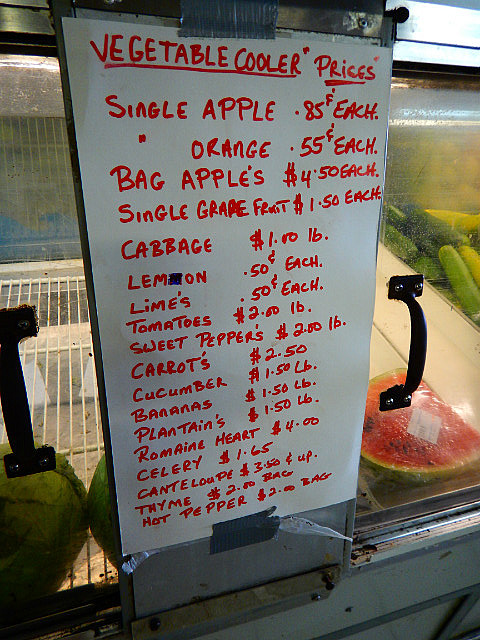 VEGETABLE COOLER" PRICES"
SINGLE APPLE .85¢ EACH.
" ORANGE .55¢ EACH.
BAG APPLE'S $4.50 EACH.
SINGLE GRAPE FRUIT $1.50 EACH.
CABBAGE $1.00 lb.
LEMON .50¢ EACH.
LIME'S .50¢ EACH.
TOMATOES $2.00 lb.
SWEET PEPPER'S $2.00 lb.
CARROT'S $2.50
CUCUMBER $1.50 Lb.
BANANAS $1.50 Lb.
PLANTAIN'S $1.50 Lb.
ROMAINE HEART $4.00
CELERY $1.65
CANTELOUPE $3.50 & UP.
THYME $2.00 BAG
HOT PEPPER $2.00 BAG